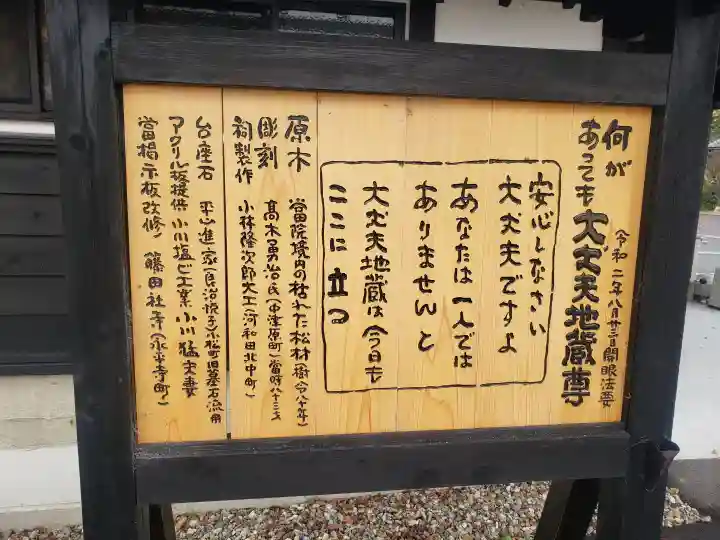 何が
あっても大丈夫地蔵尊
(令和二年八月廿三日開眼法要)
安心しなさい
大丈夫ですよ
あなたは一人では
ありませんと
大丈夫地蔵は今日も
ここに立つ
原木 當院境内の枯れた松材(樹令八十年)
彫刻 髙木勇治氏(中津原町)當時八十三才
祠製作 小林隆次郎大工(河和田北中町)
台座石 平山進家(良治悦子)小松町旧墓石流用
アクリル板提供 小川塩ビ工業 小川猛夫妻
當掲示板改修 藤田社寺(永平寺町)